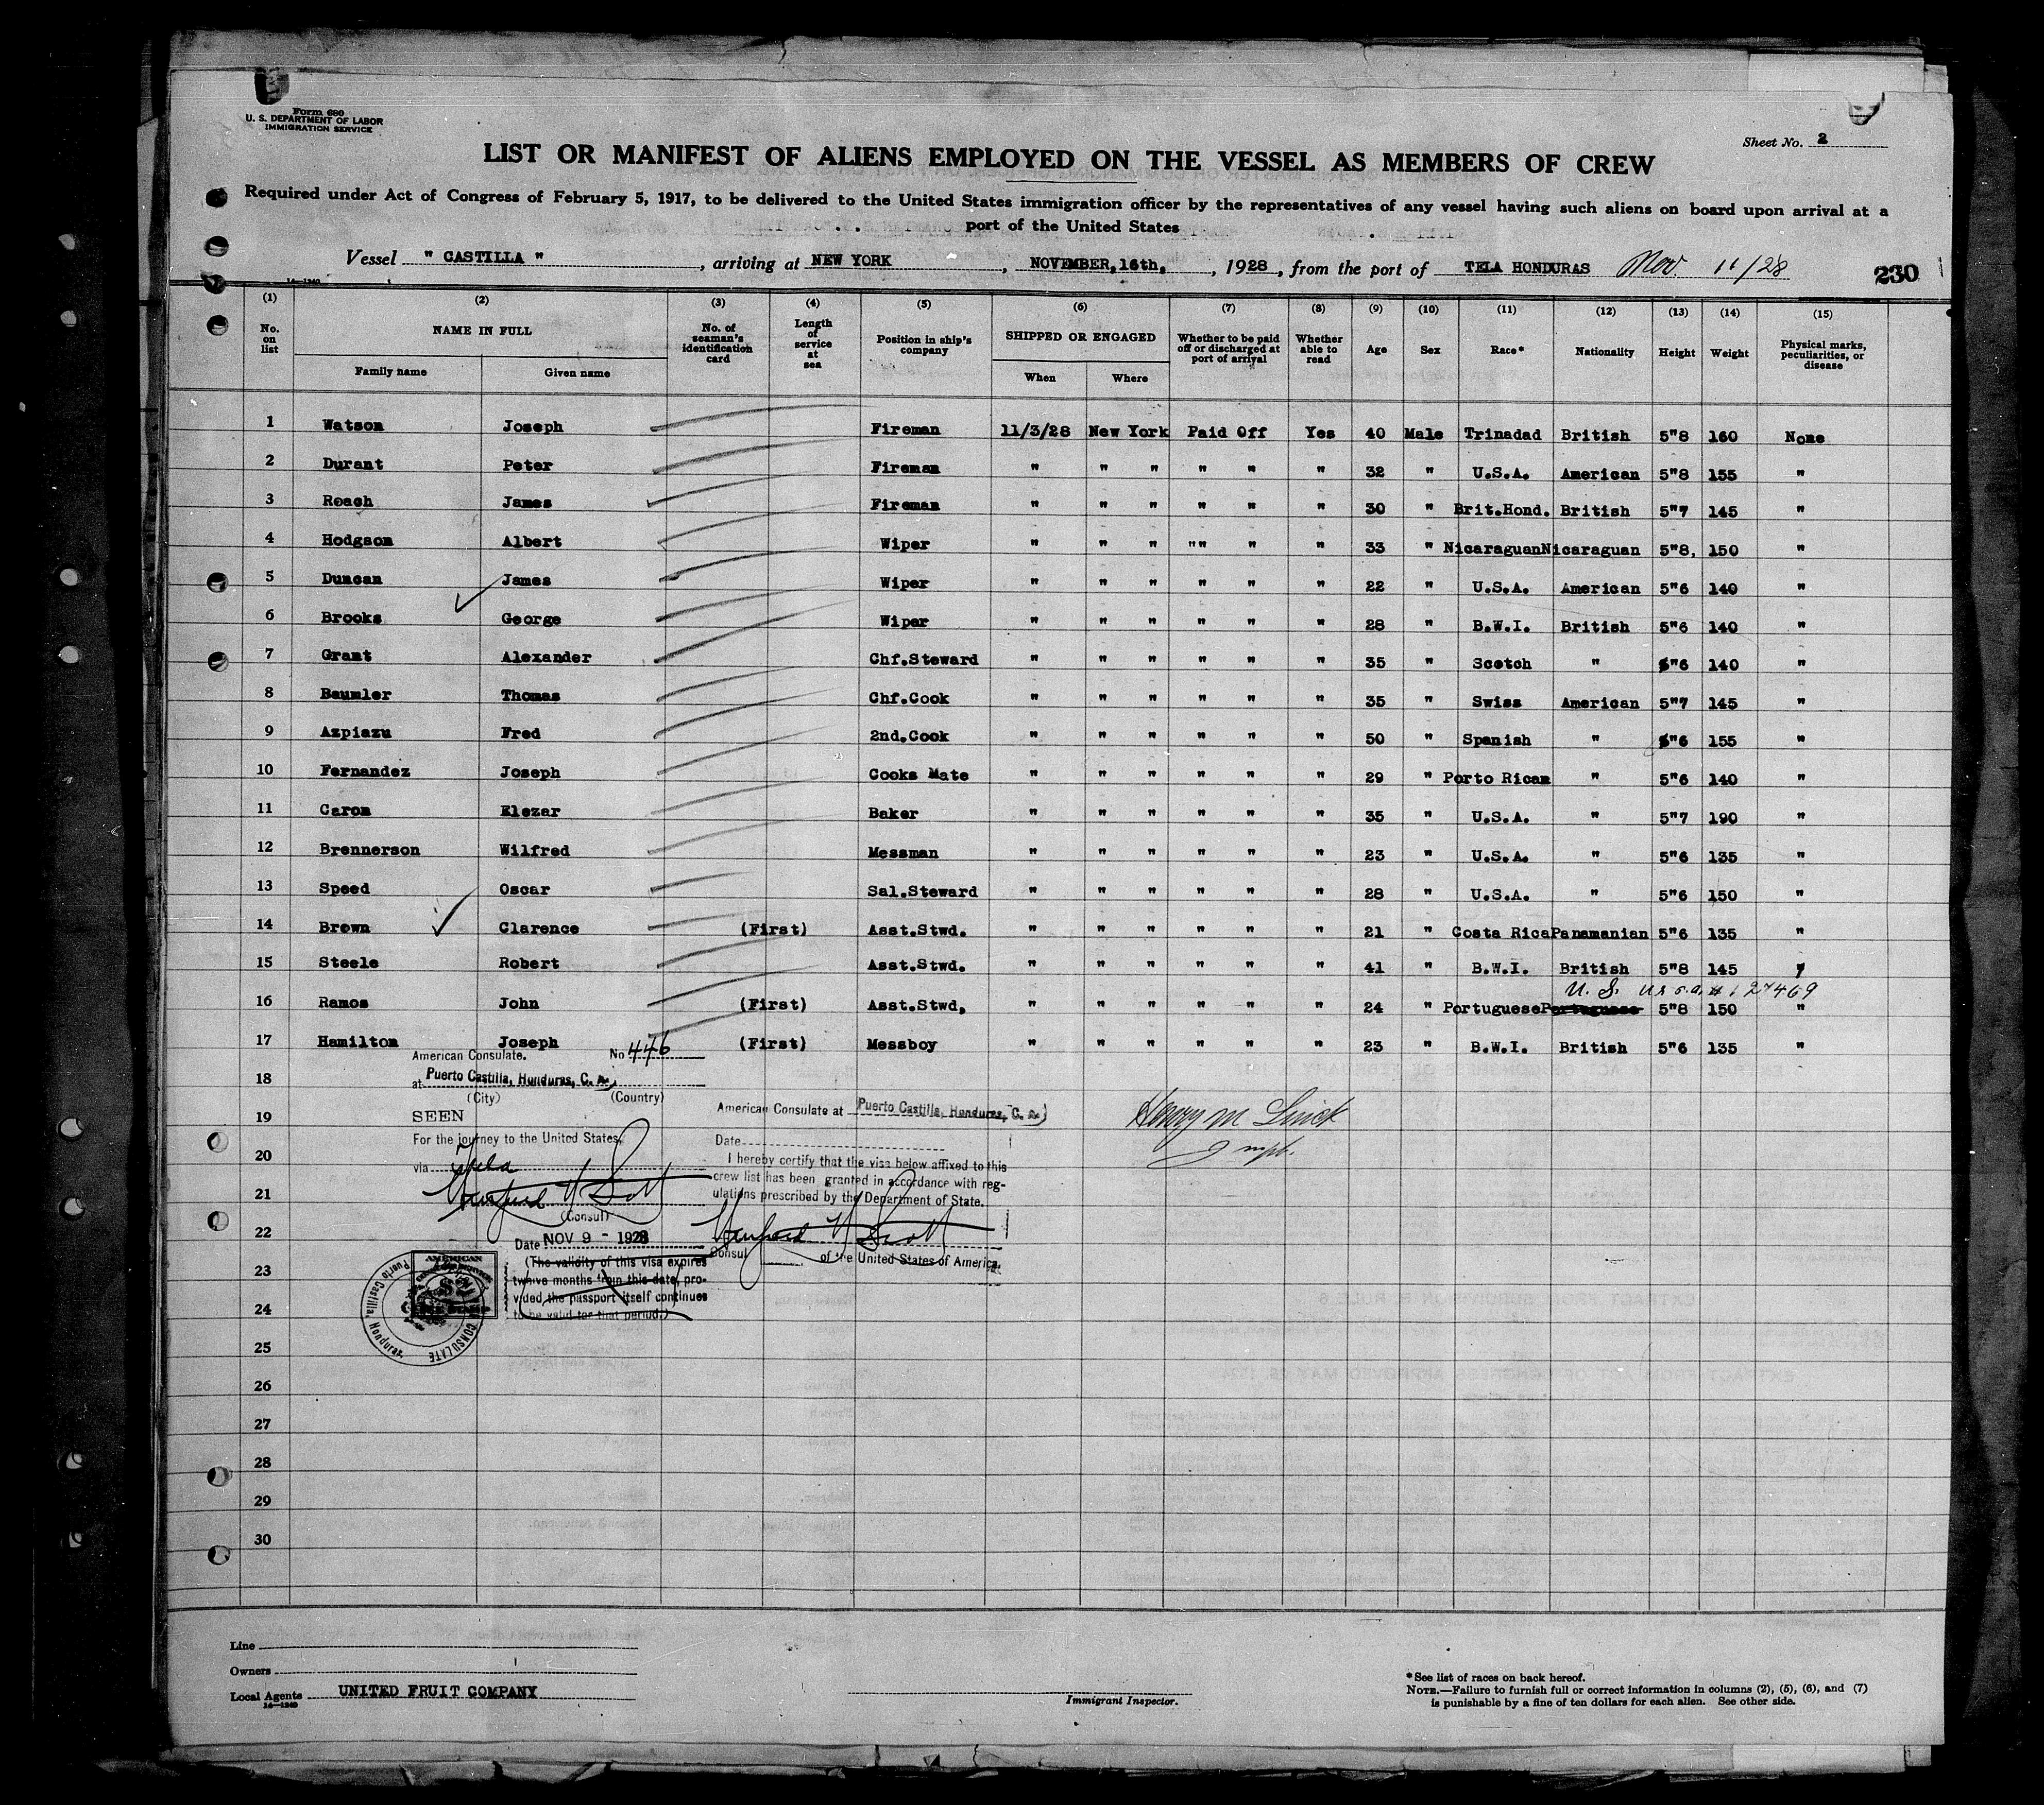 Form 680
U. S. DEPARTMENT OF LABOR
IMMIGRATION SERVICE
Sheet No. 2
LIST OR MANIFEST OF ALIENS EMPLOYED ON THE VESSEL AS MEMBERS OF CREW
Required under Act of Congress of February 5, 1917, to be delivered to the United States immigration officer by the representatives of any vessel having such aliens on board upon arrival at a
port of the United States
Vessel " CASTILLA ", arriving at NEW YORK, NOVEMBER,16th, , 1928, from the port of TELA HONDURAS Nov 11/28
230
14—1240
(1) (2) (3) (4) (5) (6) (7) (8) (9) (10) (11) (12) (13) (14) (15)
No. on list NAME IN FULL Family name Given name No. of seaman's identification card Length of service at sea Position in ship's company SHIPPED OR ENGAGED When Where Whether to be paid off or discharged at port of arrival Whether able to read Age Sex Race* Nationality Height Weight Physical marks, peculiarities, or disease
1 Watson Joseph Fireman 11/3/28 New York Paid Off Yes 40 Male Trinadad British 5"8 160 None
2 Durant Peter Fireman " " " " " " 32 " U.S.A. American 5"8 155 "
3 Roach James Fireman " " " " " " 30 " Brit.Hond. British 5"7 145 "
4 Hodgson Albert Wiper " " " "" " " 33 " Nicaraguan Nicaraguan 5"8, 150 "
5 Duncan James Wiper " " " " " " 22 " U.S.A. American 5"6 140 "
6 Brooks George Wiper " " " " " " 28 " B.W.I. British 5"6 140 "
7 Grant Alexander Chf.Steward " " " " " " 35 " Scotch " 5"6 140 "
8 Baumler Thomas Chf.Cook " " " " " " 35 " Swiss American 5"7 145 "
9 Azpiazu Fred 2nd.Cook " " " " " " 50 " Spanish " 5"6 155 "
10 Fernandez Joseph Cooks Mate " " " " " " 29 " Porto Rican " 5"6 140 "
11 Caron Elezar Baker " " " " " " 35 " U.S.A. " 5"7 190 "
12 Brennerson Wilfred Messman " " " " " " 23 " U.S.A. " 5"6 135 "
13 Speed Oscar Sal.Steward " " " " " " 28 " U.S.A. " 5"6 150 "
14 Brown Clarence (First) Asst.Stwd. " " " " " " 21 " Costa Rica Panamanian 5"6 135 "
15 Steele Robert Asst.Stwd. " " " " " " 41 " B.W.I. British 5"8 145 "
U. S.
16 Ramos John (First) Asst.Stwd, " " " " " " 24 " Portuguese Portuguese 5"8 150 "
17 Hamilton Joseph (First) Messboy " " " " " " 23 " B.W.I. British 5"6 135 "
18
19
20
21
22
23
24
25
26
27
28
29
30
American Consulate. No 446
at Puerto Castilla, Honduras, C. A.
(City) (Country)
SEEN
For the journey to the United States,
via Tela
(Consul)
Date NOV 9 - 1928
(The validity of this visa expires
twelve months from this date, pro-
vided the passport itself continues
to be valid for that period.)
AMERICAN
CONSULATE
Puerto Castilla, Honduras.
American Consulate at Puerto Castilla, Honduras, C. A.
Date
I hereby certify that the visa below affixed to this
crew list has been granted in accordance with reg-
ulations prescribed by the Department of State.
Consul of the United States of America.
Henry M
Line
Owners
Local Agents UNITED FRUIT COMPANY
14—1240
Immigrant Inspector.
*See list of races on back hereof.
NOTE.—Failure to furnish full or correct information in columns (2), (5), (6), and (7)
is punishable by a fine of ten dollars for each alien. See other side.